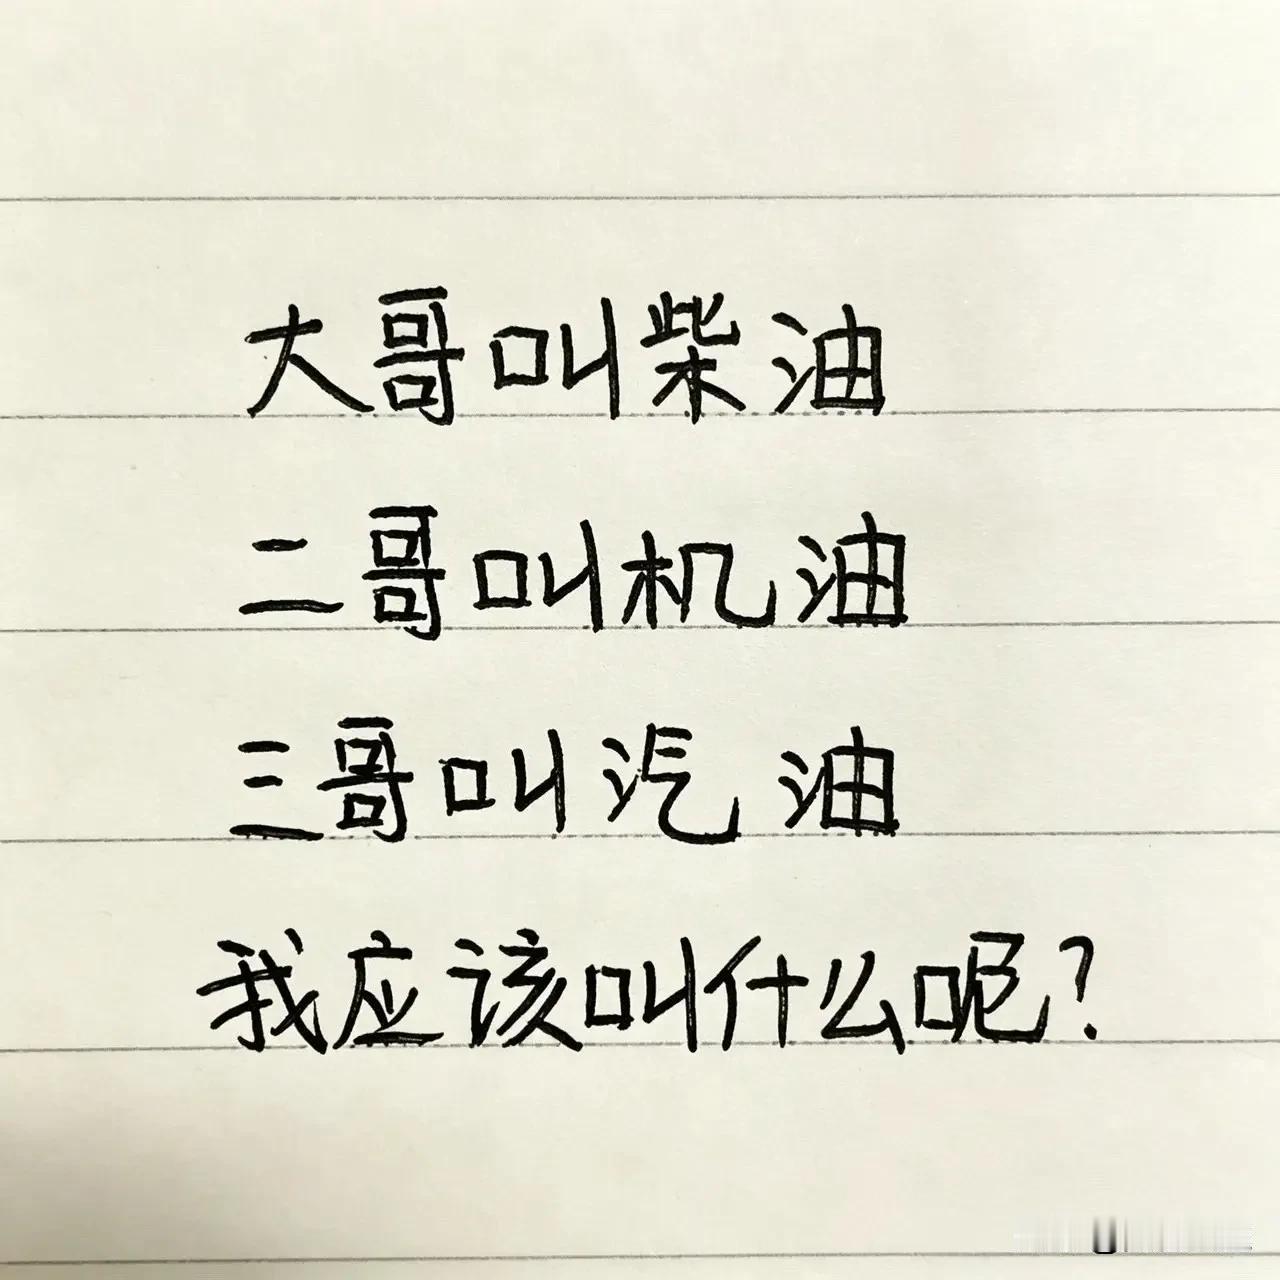 大哥叫柴油
二哥叫机油
三哥叫汽油
我应该叫什么呢?